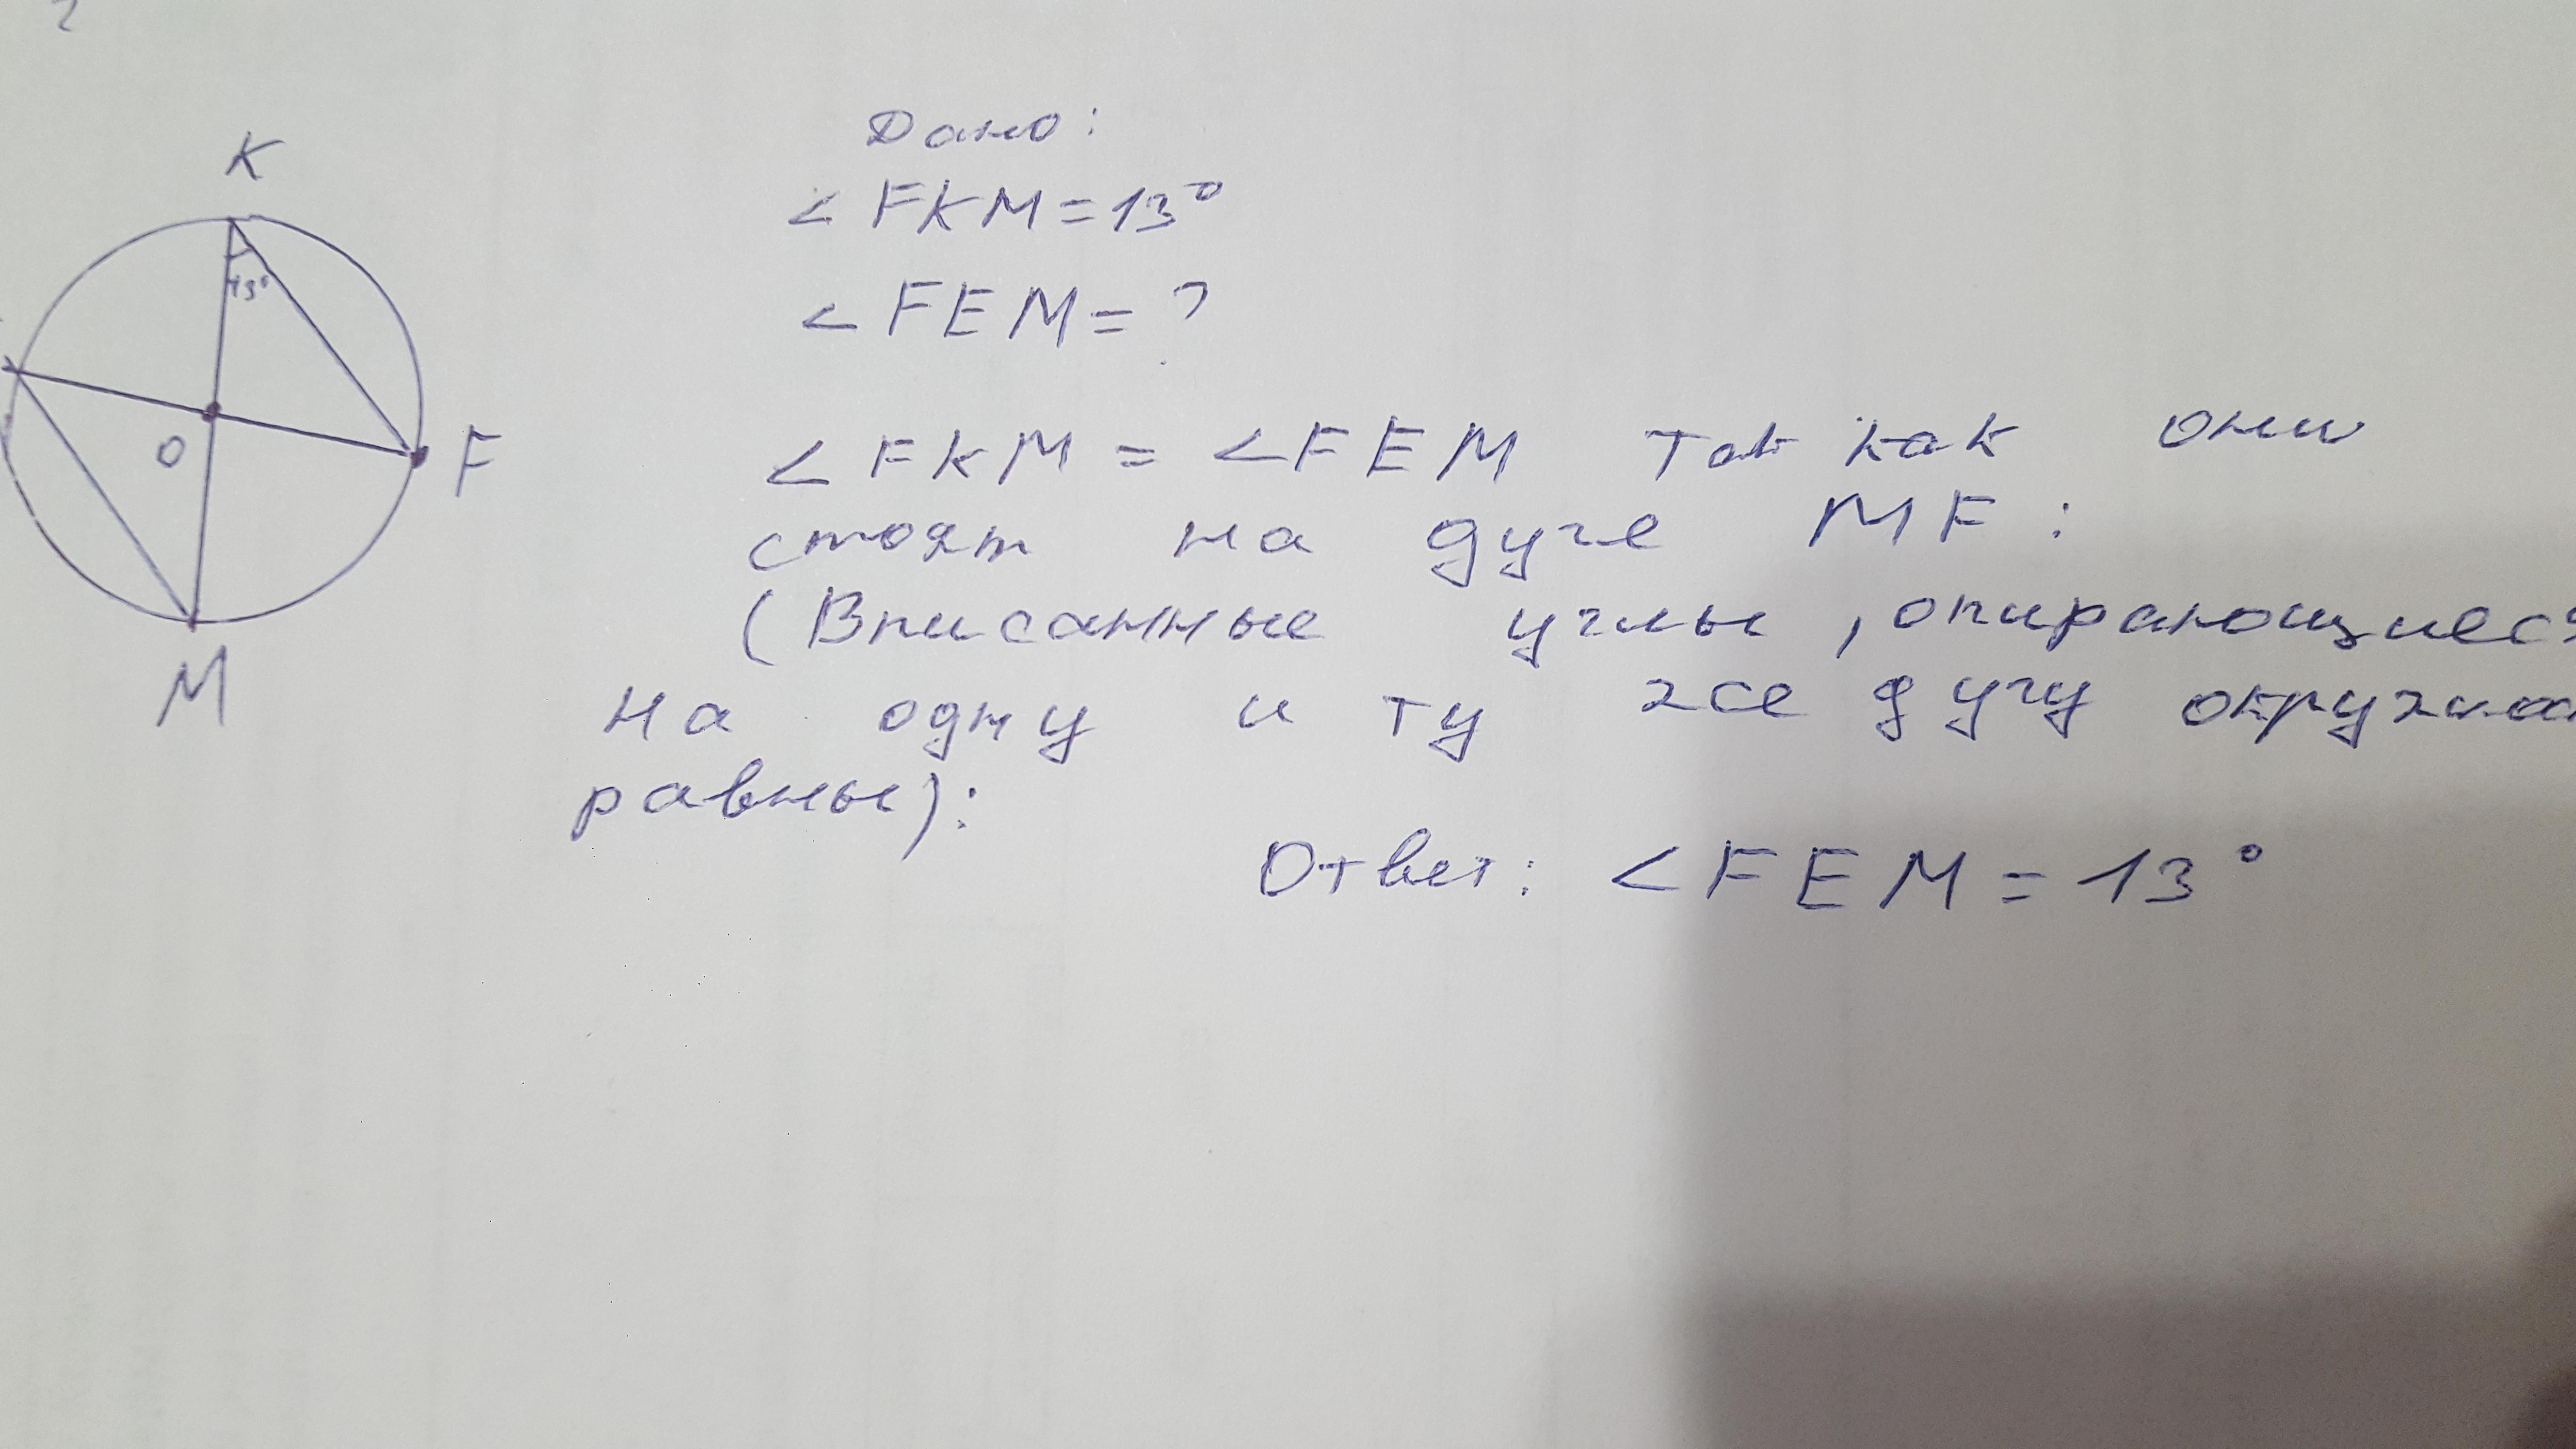 K
13°
O
F
M
Дано:
∠FKM=13°
∠FEM=?
∠FKM=∠FEM так как они
стоят на дуге MF:
(Вписанные углы, опирающиеся
на одну и ту же дугу окружно
равны):
Ответ: ∠FEM=13°